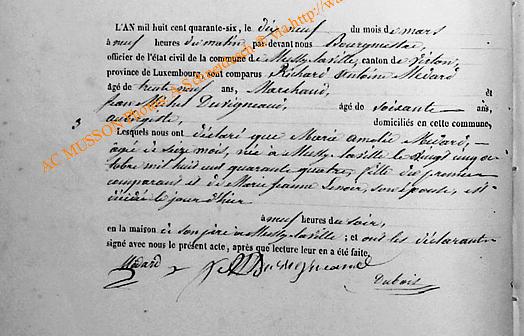 L'AN mil huit cent quarante-six, le dix neuf du mois de mars
à neuf heures du matin, par devant nous Bourgmestre,
officier de l'état civil de la commune de Mussy-la-ville, canton de Virton,
province de Luxembourg, sont comparus Richard Antoine Médard
âgé de trente neuf ans, Marchand, et
Jean Michel Duvigneaud, âgé de soixante ans,
domiciliés en cette commune,
3
Lesquels nous ont déclaré que Marie Amélie Médard,
âgée de seize mois, née à Mussy-la-ville le vingt un oc
tobre mil huit cent quarante quatre, fille du premier
comparant et de Marie Jeanne Lenoir, son épouse, est
décédée le jour d'hier
à neuf heures du soir,
en la maison de son père à Mussy-la-ville ; et ont les déclarants
signé avec nous le présent acte, après que lecture leur en a été faite.
Médard Duvigneaud
Dubois
AC MUSSON Photos A Schneidesch © via http://w